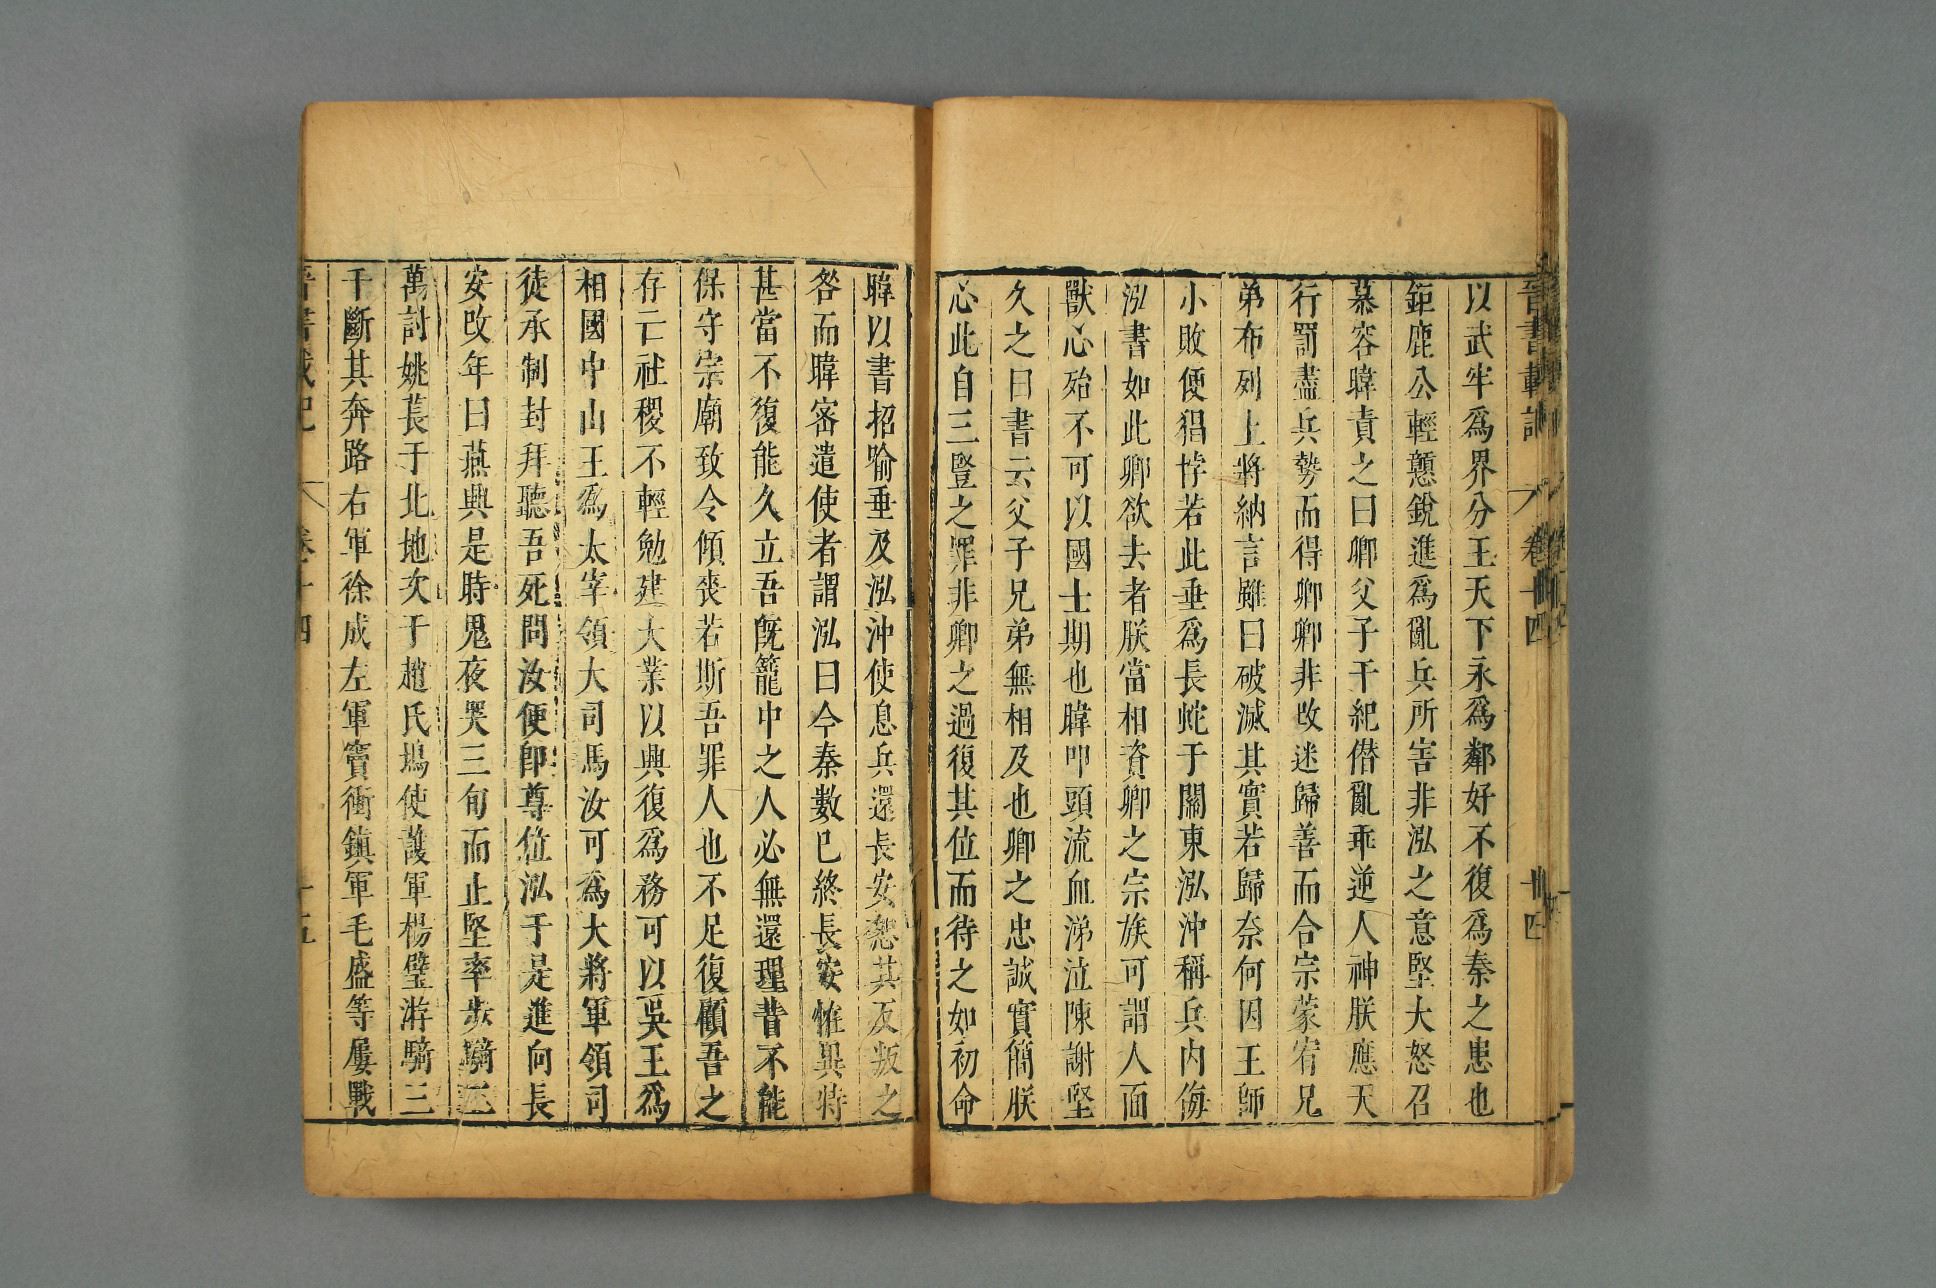 晉書載記 卷十四 十四
以武牢爲界分王天下永爲鄰好不復爲秦之患也
鉅鹿公輕戇銳進爲亂兵所害非泓之意堅大怒召
慕容暐責之曰卿父子干紀僭亂乖逆人神朕應天
行罰盡兵勢而得卿卿非改迷歸善而合宗蒙宥兄
弟布列上將納言雖曰破滅其實若歸奈何因王師
小敗便猖悖若此垂爲長蛇于關東泓沖稱兵内侮
泓書如此卿欲去者朕當相資卿之宗族可謂人面
獸心殆不可以國士期也暐叩頭流血涕泣陳謝堅
久之曰書云父子兄弟無相及也卿之忠誠實簡朕
心此自三豎之罪非卿之過復其位而待之如初命
暐以書招喻垂及泓沖使息兵還長安恕其反叛之
咎而暐密遣使者謂泓曰今秦數已終長安恠異特
甚當不復能久立吾旣籠中之人必無還理昔不能
保守宗廟致令傾喪若斯吾罪人也不足復顧吾之
存亡社稷不輕勉建大業以興復爲務可以吳王爲
相國中山王爲太宰領大司馬汝可爲大將軍領司
徒承制封拜聽吾死問汝便卽尊位泓于是進向長
安改年曰燕興是時鬼夜哭三旬而止堅率步騎二
萬討姚萇于北地次于趙氏塢使護軍楊璧游騎三
千斷其奔路右軍徐成左軍竇衝鎮軍毛盛等屢戰
晉書載記 卷十四 十五